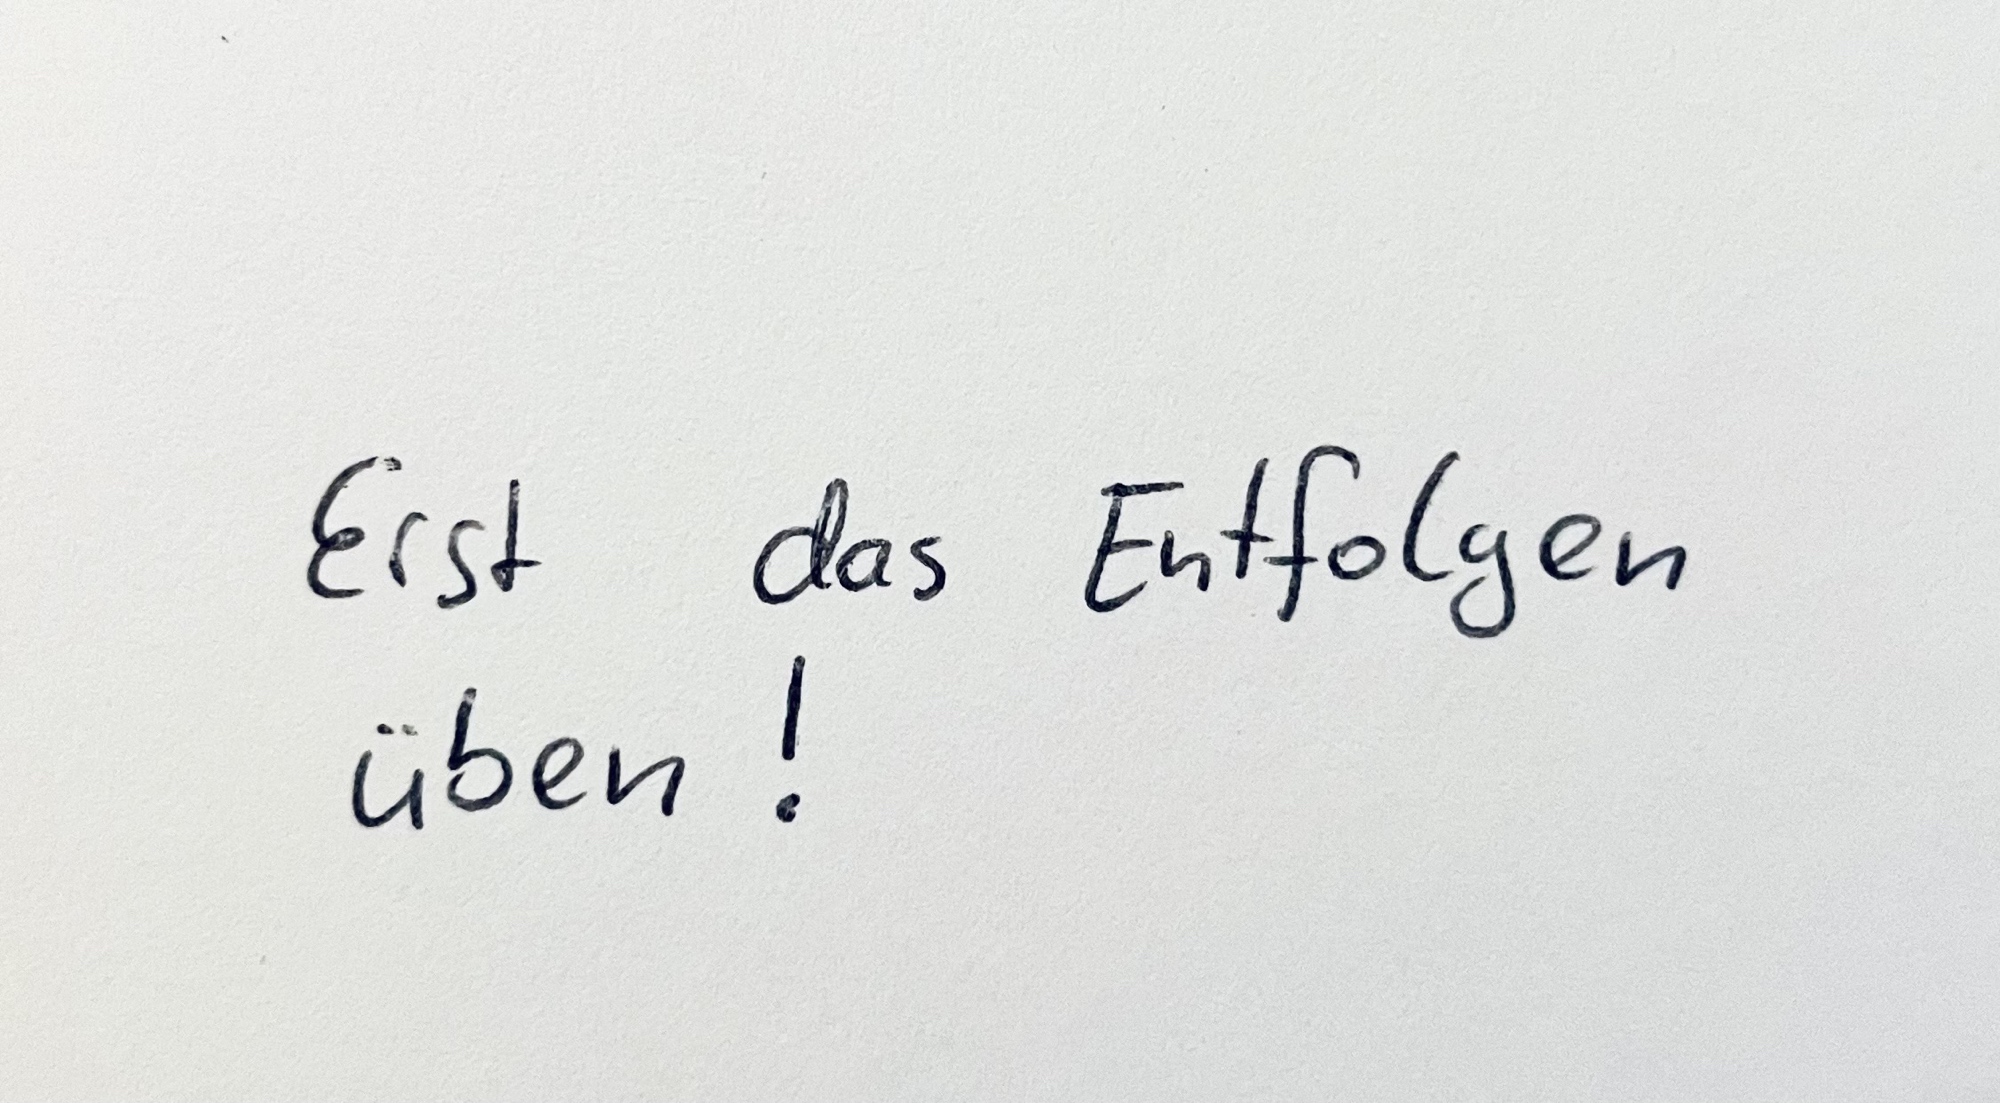 Erst das Entfolgen
üben!